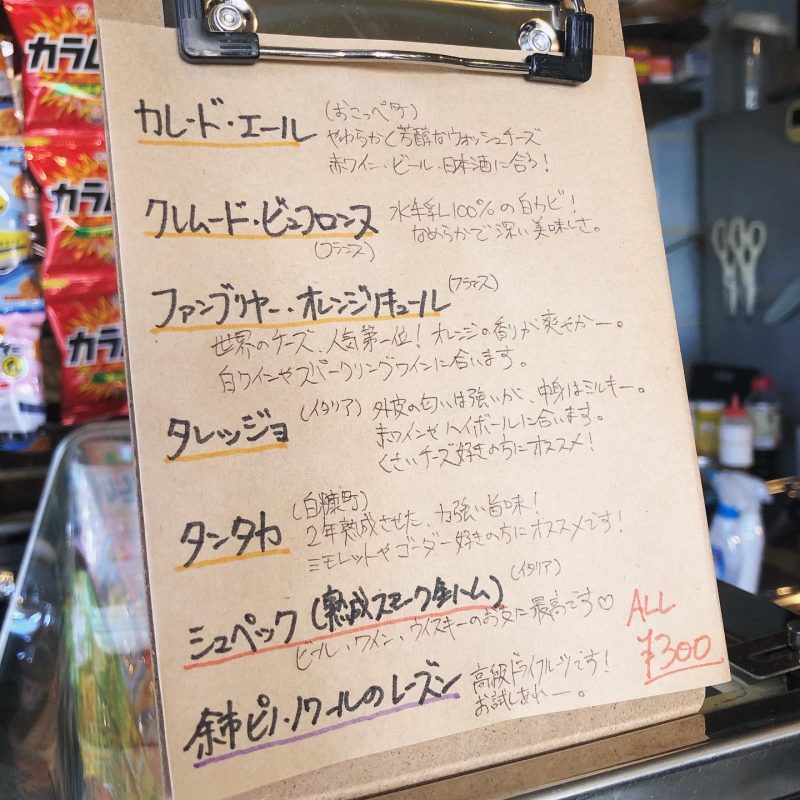 カレ・ド・エール (おこっぺ町)
やわらかく芳醇なウォッシュチーズ
赤ワイン・ビール・日本酒に合う!
クレムード・ビュフロンヌ (フランス)
水牛乳100%の白カビ!
なめらかで深い美味しさ。
ファンブリヤー・オレンジリキュール (フランス)
世界のチーズ、人気第一位!オレンジの香りが爽やかー。
白ワインやスパークリングワインに合います。
タレッジョ (イタリア) 外皮の匂いは強いが、中身はミルキー。
赤ワインやハイボールに合います。
くさいチーズ好きの方にオススメ!
タンタカ (白糠町)
2年熟成させた、力強い旨味!
ミモレットやゴーダー好きの方にオススメです!
シュペック(熟成スモーク生ハム) (イタリア)
ビール・ワイン・ウイスキーのお友に最高です♡
余市ピノ・ノワールのレーズン 高級ドライフルーツです!
お試しあれー。
ALL
¥300
カラム
カラム
カラム